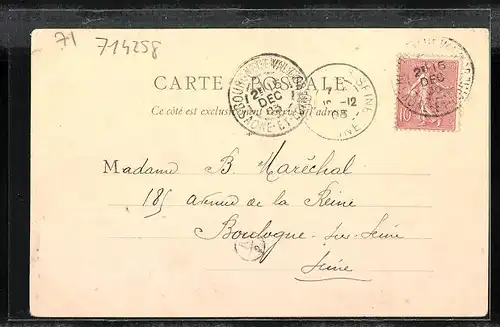 71
714258
CARTE POSTALE
Ce côté est exclusivement réservé à l'adresse
2E 15
DEC
SAONE-ET-LOIRE
SEINE
7
-12
03
2E 15
DEC
10
Madame B. Maréchal
185 avenue de la Reine
Boulogne sur Seine
Seine